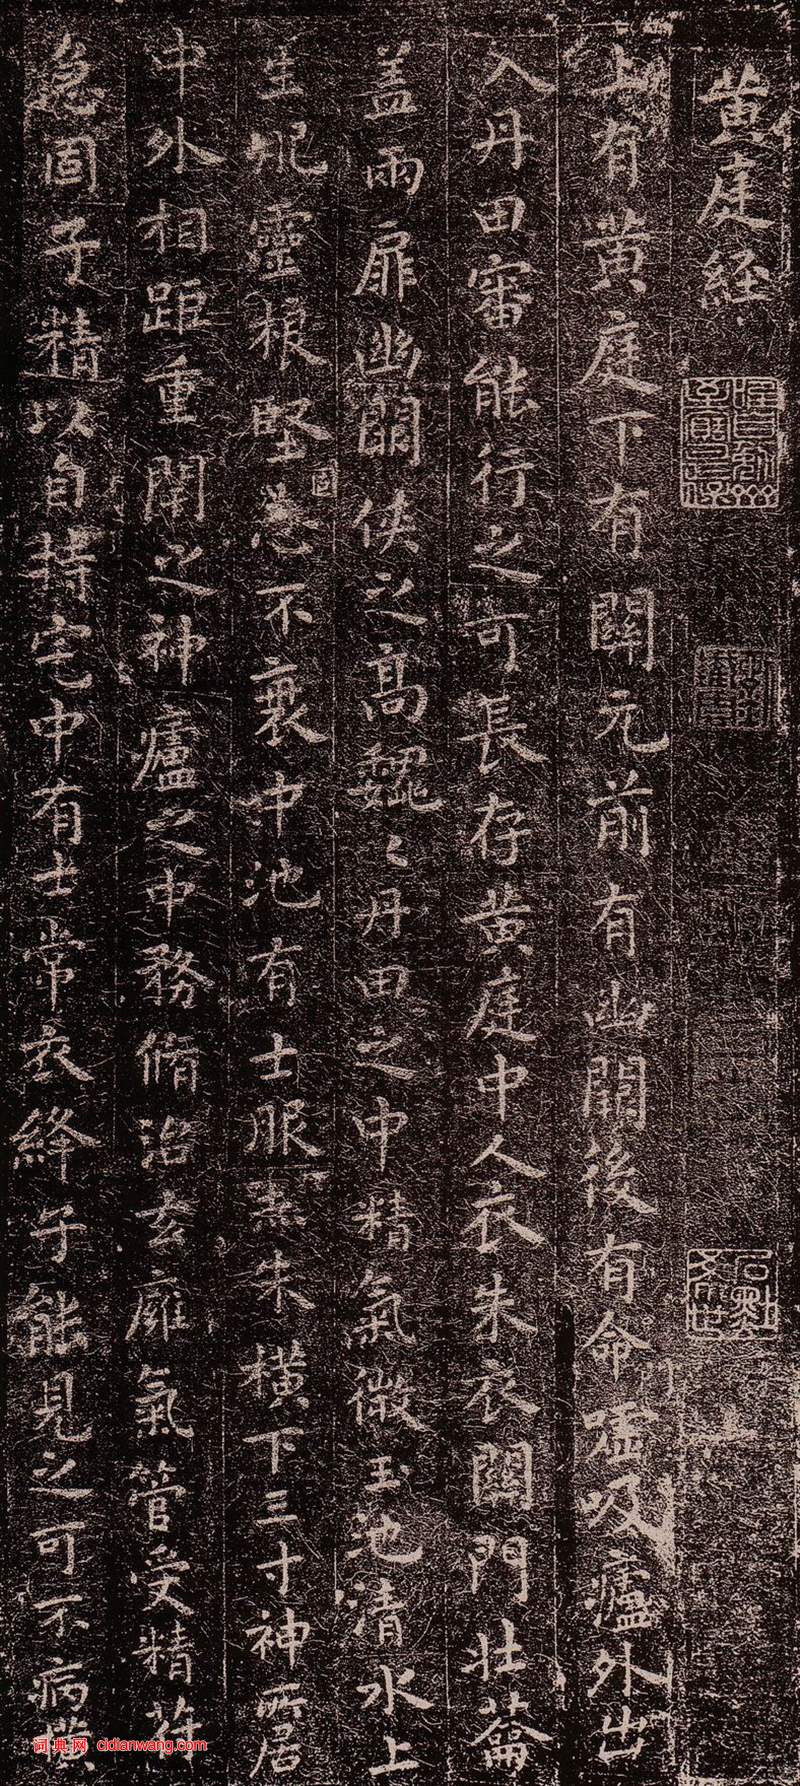 黄庭経
上有黄庭下有關元前有幽闕後有命嘘吸廬外出
入丹田審能行之可長存黄庭中人衣朱衣關門壯蘥
盖兩扉幽闕俠之高巍〻丹田之中精氣微玉池清水上
生肥靈根堅志不衰中池有士服赤朱橫下三寸神所居
固
中外相距重閉之神廬之中務脩治玄廱氣管受精符
急固子精以自持宅中有士常衣絳子能見之可不病橫
词典网 cidianwang.com